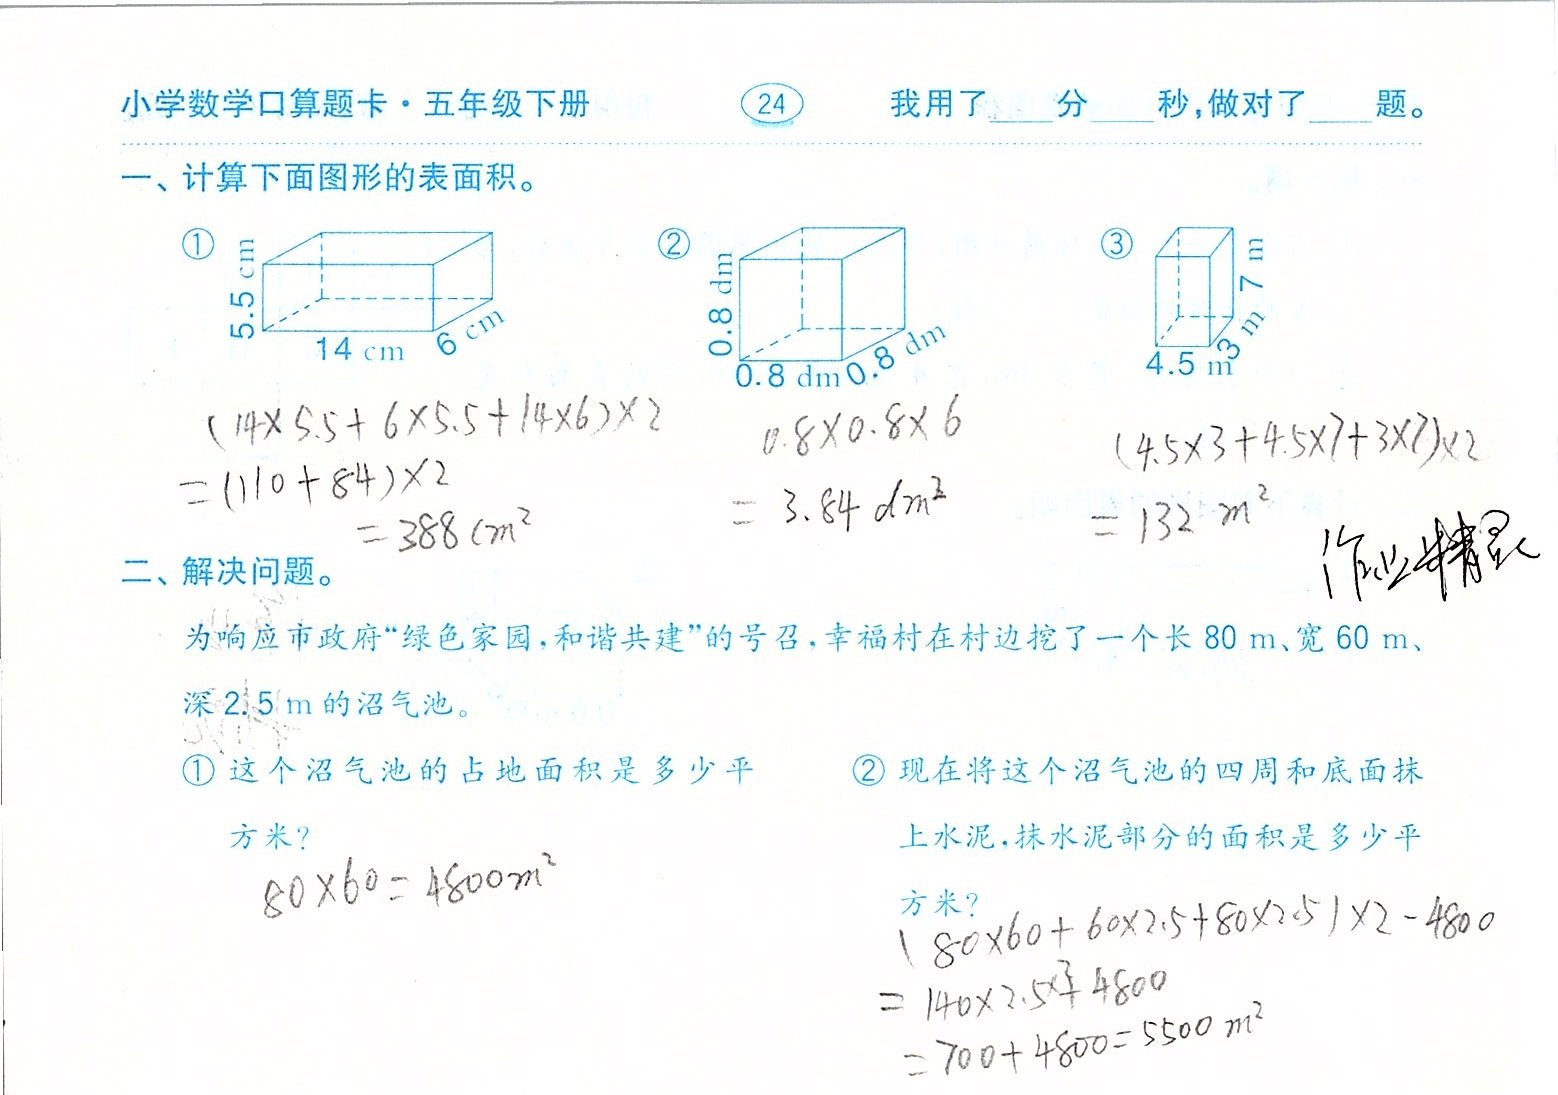 小学数学口算题卡·五年级下册 24 我用了____分____秒,做对了____题。
一、计算下面图形的表面积。
① 5.5 cm 14 cm 6 cm
② 0.8 dm 0.8 dm 0.8 dm
③ 7 m 4.5 m 3 m
(14×5.5+6×5.5+14×6)×2
=(110+84)×2
=388cm²
0.8×0.8×6
=3.84 dm²
(4.5×3+4.5×7+3×7)×2
=132 m²
作业精灵
二、解决问题。
为响应市政府“绿色家园,和谐共建”的号召,幸福村在村边挖了一个长 80 m、宽 60 m、
深 2.5 m 的沼气池。
① 这个沼气池的占地面积是多少平
方米?
80×60=4800m²
② 现在将这个沼气池的四周和底面抹
上水泥,抹水泥部分的面积是多少平
方米?
(80×60+60×2.5+80×2.5)×2-4800
=140×2.5×2+4800
=700+4800=5500 m²